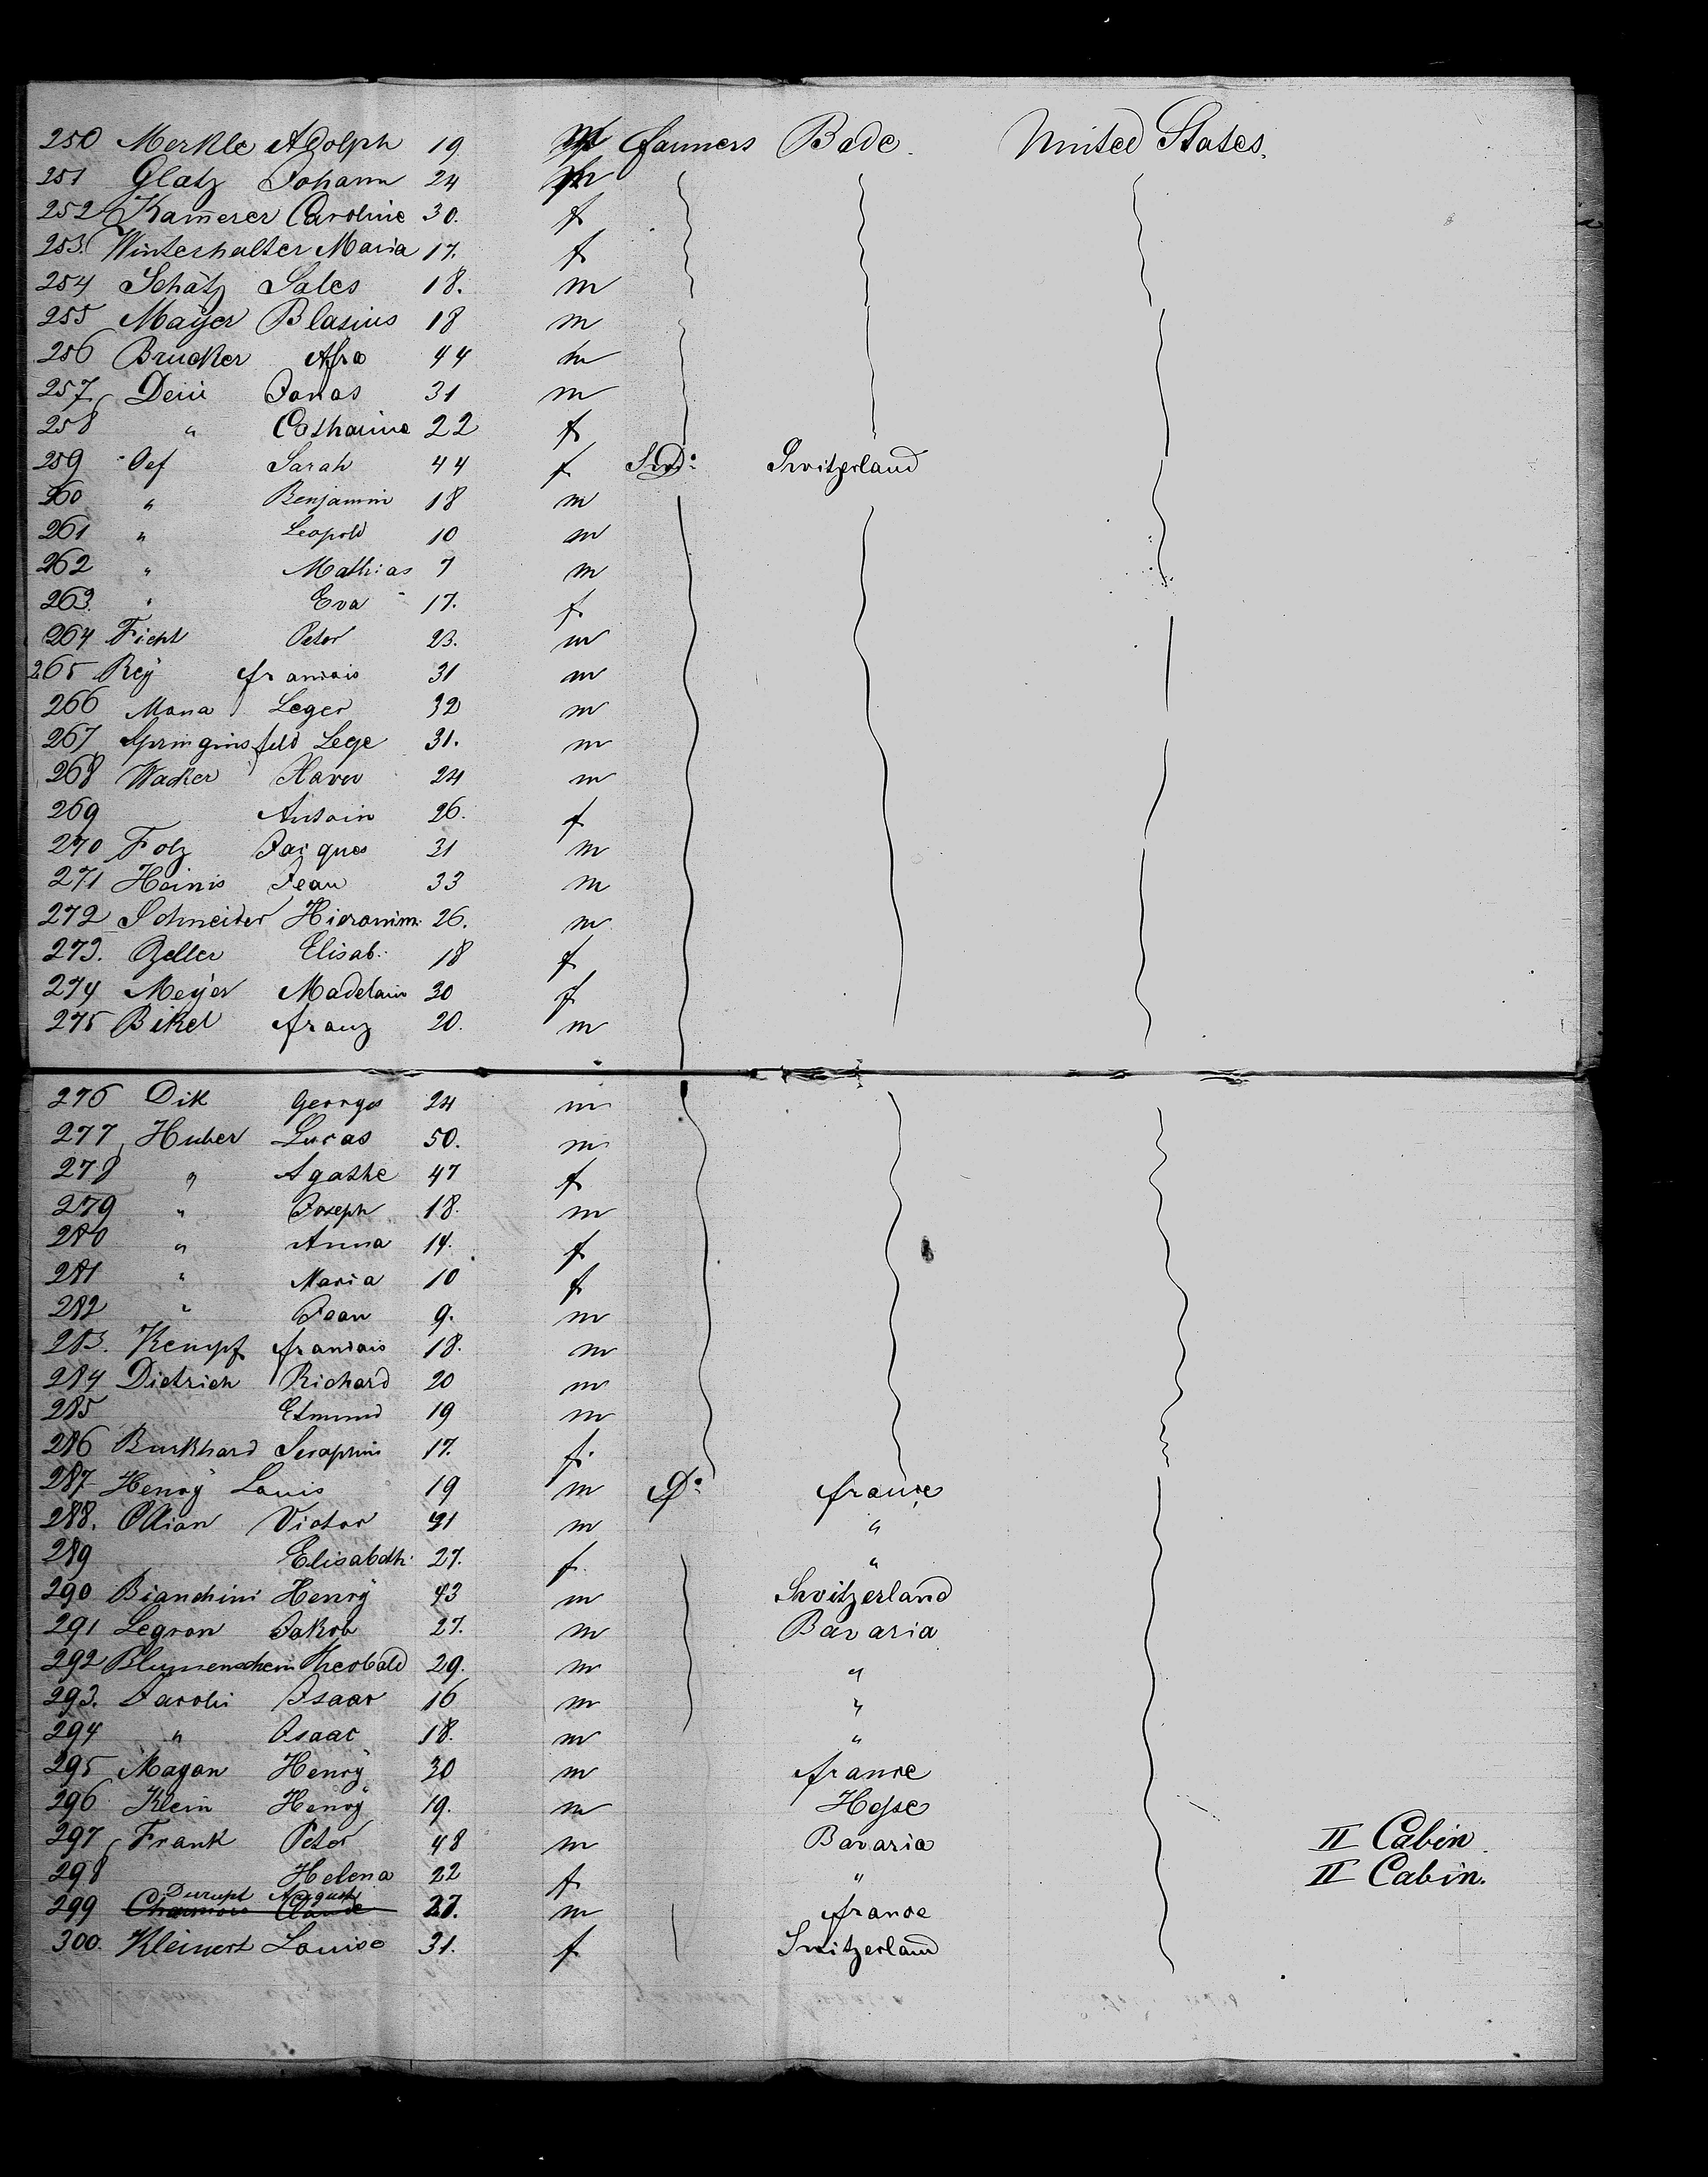 250 Merkle Adolph 19 m farmers Bade. United States.
251 Glatz Johann 24 m
252 Kam̅erer Caroline 30. f
253. Winterhalter Maria 17. f
254 Schätz Sales 18. m
255 Mayer Blasius 18 m
256 Brucker Afra 44 m
257 Jonas 31 m
258 " Catharina 22 f
259 Oef Sarah 44 f Do Switzerland
260 " Benjamin 18 m
261 " Leopold 10 m
262 " Mathias 7 m
263. " Eva 17. f
264 Ficht Peter 23. m
265 Rey francois 31 m
266 Mona Leger 32 m
267 Springinsfeld Lege 31. m
268 Waker Xaver 24 m
269 Antoin 26. f
270 Folz Jacques 31 m
271 Heinis Jean 33 m
272 Schneider Hieronim. 26. m
273. Zeller Elisab. 18 f
274 Meyer Madelain 30 f
275 Bikel franz 20. m
276 Dik Georges 24 m
277 Huber Lucas 50. m
278 " Agathe 47 f
279 " Joseph 18. m
280 " Anna 14. f
281 " Maria 10 f
282 " Jean 9. m
283. Kempf francois 18. m
284 Dietrich Richard 20 m
285 Edmund 19 m
286 Burkhard Seraphin 17. f.
287 Henry Louis 19 m Do france
288. Victor m "
289 Elisabeth. 27. f. "
290 Bianchini Henry 43 m Switzerland
291 Legron Jakob 27. m Bavaria
292 Blumenschein Theobald 29. m "
293. Isaac 16 m "
294 " Isaac 18. m "
295 Magon Henry 30 m france
296 Klein Henry 19. m Hesse
297 Frank Peter 48 m Bavaria II Cabin
298 Helena 22 f " II Cabin.
Durupt August
299 Claude 27. m france
300. Kleinert Louise 31. f Switzerland